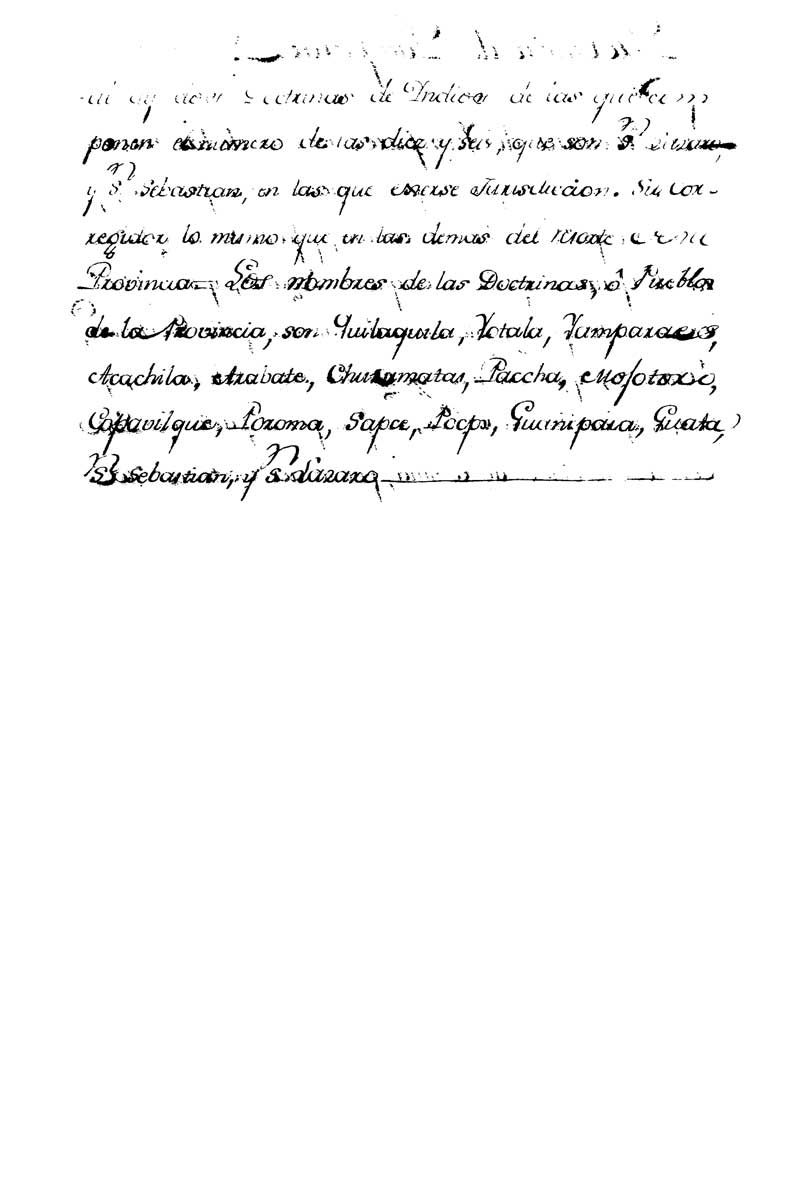 al ay dos Doctrinas de Indios de las que com
ponen el numero de las diez y seis, que son Sn. Lazaro,
y Sn. Sebastian, en las que exerse Jurisdiccion. Su Cor-
regidor lo mismo que en las demas del
Provincia = Los nombres de las Doctrinas, ô Pueblos
de la Provincia, son Quilaquila, Yotala, Yamparaes,
Acachila, Arabate, Chuqumatas, Paccha, Mojotoro,
Copavilque, Poroma, Sapce, Pocpo, Guanipaia, Guata,
Sn. Sebastian, y Sn. Lázaro